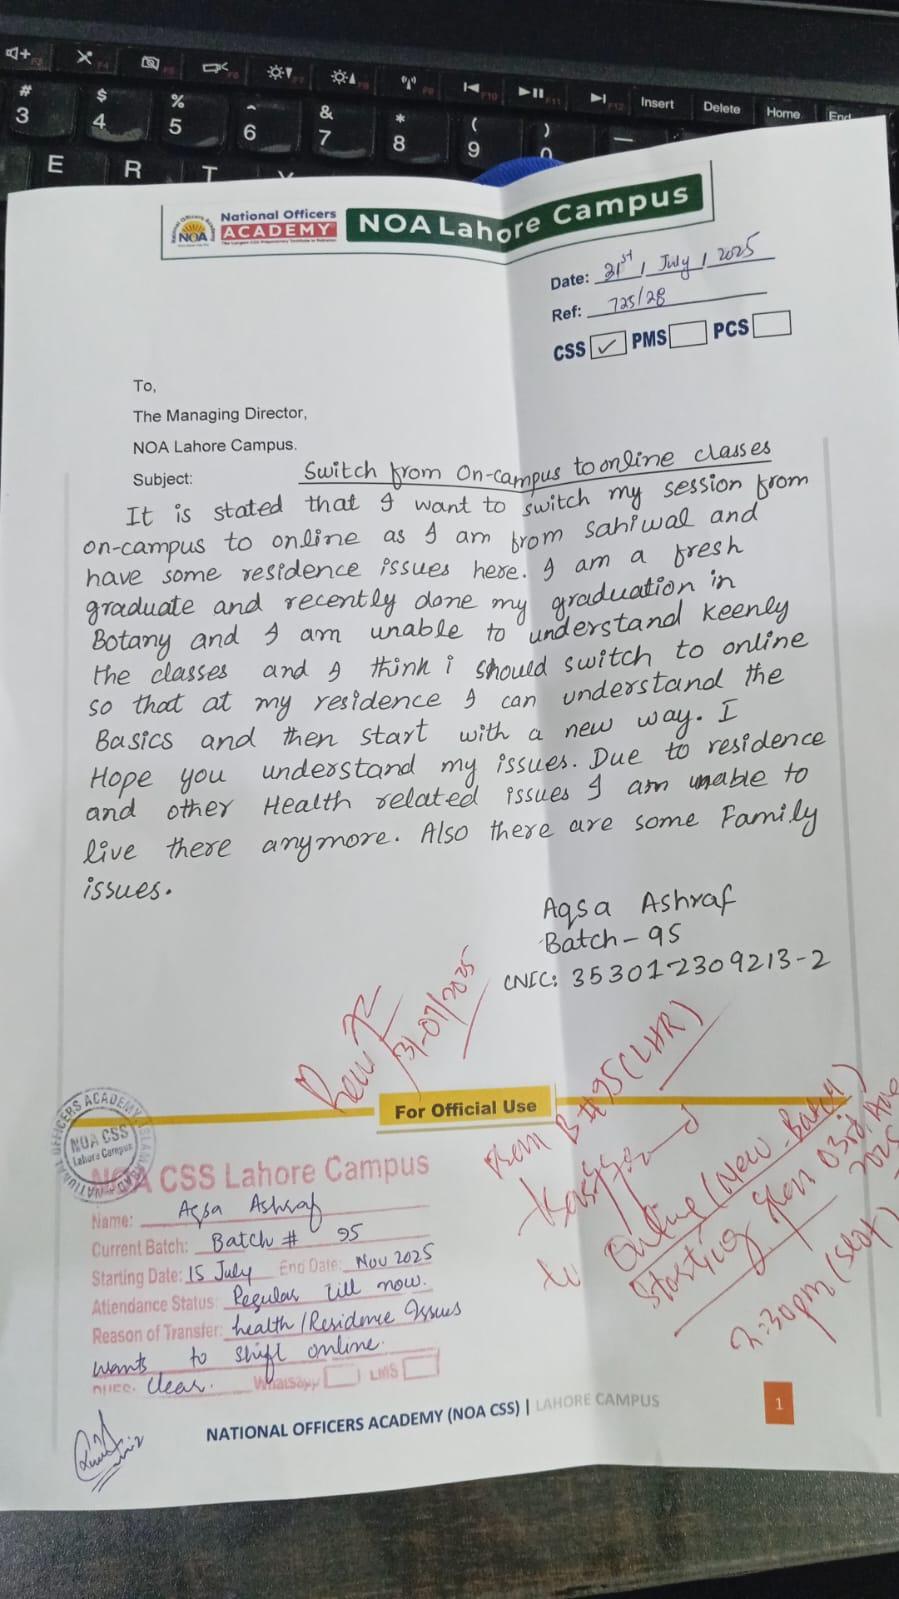 National Officers
ACADEMY
NOA
NOA Lahore Campus
Date: 31st / July / 2025
Ref: 725/28
CSS ✓ PMS PCS
To,
The Managing Director,
NOA Lahore Campus.
Subject: Switch from On-campus to online classes
It is stated that I want to switch my session from
on-campus to online as I am from Sahiwal and
have some residence issues here. I am a fresh
graduate and recently done my graduation in
Botany and I am unable to understand keenly
the classes and I think i should switch to online
so that at my residence I can understand the
Basics and then start with a new way. I
Hope you understand my issues. Due to residence
and other Health related issues I am unable to
live there anymore. Also there are some Family
issues.
Aqsa Ashraf
Batch-95
CNIC: 35301-2309213-2
31-07/2025
For Official Use
B#95 (LHR)
to Online (New Batch)
Starting from 03rd
2025
2:30pm (slot)
NOA CSS
Lahore Campus
NOA CSS Lahore Campus
Name: Aqsa Ashraf
Current Batch: Batch # 95
Starting Date: 15 July End Date: Nov 2025
Attendance Status: Regular till now.
Reason of Transfer: health/Residence Issues
wants to shift online.
Dues: Clear. Whatsapp LMS
NATIONAL OFFICERS ACADEMY (NOA CSS) | LAHORE CAMPUS
1
# 3 $ 4 % 5 ^ 6 & 7 * 8 ( 9 )
Insert Delete Home End
E R T